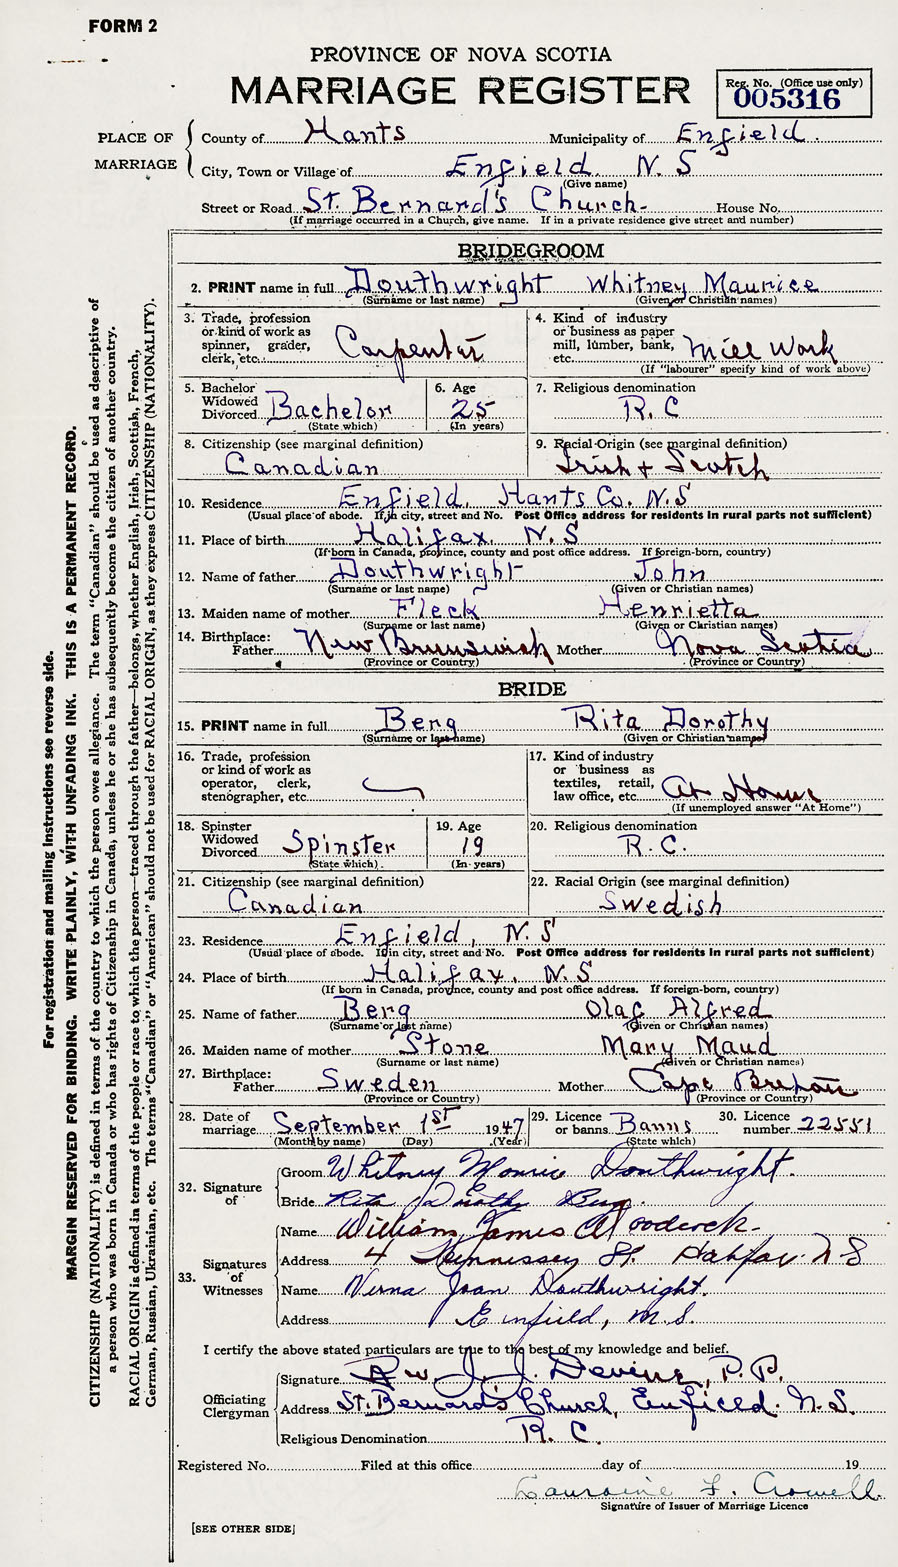 FORM 2
PROVINCE OF NOVA SCOTIA
MARRIAGE REGISTER
Reg. No. (Office use only)
005316
PLACE OF MARRIAGE
County of Hants Municipality of Enfield.
City, Town or Village of Enfield. N. S
(Give name)
Street or Road St. Bernard's Church- House No.
(If marriage occurred in a Church, give name. If in a private residence give street and number)
BRIDEGROOM
2. PRINT name in full Douthwright Whitney Maurice
(Surname or last name) (Given or Christian names)
3. Trade, profession or kind of work as spinner, grader, clerk, etc. Carpenter
4. Kind of industry or business as paper mill, lumber, bank, etc. Mill Work
(If "labourer" specify kind of work above)
5. Bachelor Widowed Divorced Bachelor
(State which)
6. Age 25
(In years)
7. Religious denomination R.C
8. Citizenship (see marginal definition) Canadian
9. Racial Origin (see marginal definition) Irish + Scotch
10. Residence Enfield. Hants Co. N.S
(Usual place of abode. If in city, street and No. Post Office address for residents in rural parts not sufficient)
11. Place of birth Halifax. N. S
(If born in Canada, province, county and post office address. If foreign-born, country)
12. Name of father Douthwright John
(Surname or last name) (Given or Christian names)
13. Maiden name of mother Fleck Henrietta
(Surname or last name) (Given or Christian names)
14. Birthplace: Father New Brunswick Mother Nova Scotia
(Province or Country) (Province or Country)
BRIDE
15. PRINT name in full Berg Rita Dorothy
(Surname or last name) (Given or Christian names)
16. Trade, profession or kind of work as operator, clerk, stenographer, etc.
17. Kind of industry or business as textiles, retail, law office, etc. At Home
(If unemployed answer "At Home")
18. Spinster Widowed Divorced Spinster
(State which)
19. Age 19
(In years)
20. Religious denomination R.C.
21. Citizenship (see marginal definition) Canadian
22. Racial Origin (see marginal definition) Swedish
23. Residence Enfield, N.S
(Usual place of abode. If in city, street and No. Post Office address for residents in rural parts not sufficient)
24. Place of birth Halifax, N.S
(If born in Canada, province, county and post office address. If foreign-born, country)
25. Name of father Berg Olaf Alfred
(Surname or last name) (Given or Christian names)
26. Maiden name of mother Stone Mary Maud
(Surname or last name) (Given or Christian names)
27. Birthplace: Father Sweden Mother Cape Breton
(Province or Country) (Province or Country)
28. Date of marriage September 1st 1947
(Month by name) (Day) (Year)
29. Licence or banns Banns
(State which)
30. Licence number 22551
32. Signature of
Groom Whitney Douthwright.
Bride Rita Dorothy Berg.
33. Signatures of Witnesses
Name William James
Address 4 Hennessey St. Halifax N S
Name Verna Joan Douthwright.
Address Enfield, N.S.
I certify the above stated particulars are true to the best of my knowledge and belief.
Officiating Clergyman
Signature Rev J. J. Devine, P.P.
Address St. Bernard's Church, Enfield. N.S.
Religious Denomination R. C.
Registered No. Filed at this office day of 19
F. Crowell.
Signature of Issuer of Marriage Licence
[SEE OTHER SIDE]
For registration and mailing instructions see reverse side.
MARGIN RESERVED FOR BINDING. WRITE PLAINLY, WITH UNFADING INK. THIS IS A PERMANENT RECORD.
CITIZENSHIP (NATIONALITY) is defined in terms of the country to which the person owes allegiance. The term "Canadian" should be used as descriptive of
a person who was born in Canada or who has rights of Citizenship in Canada, unless he or she has subsequently become the citizen of another country.
RACIAL ORIGIN is defined in terms of the people or race to which the person—traced through the father—belongs, whether English, Irish, Scottish, French,
German, Russian, Ukrainian, etc. The terms "Canadian" or "American" should not be used for RACIAL ORIGIN, as they express CITIZENSHIP (NATIONALITY).